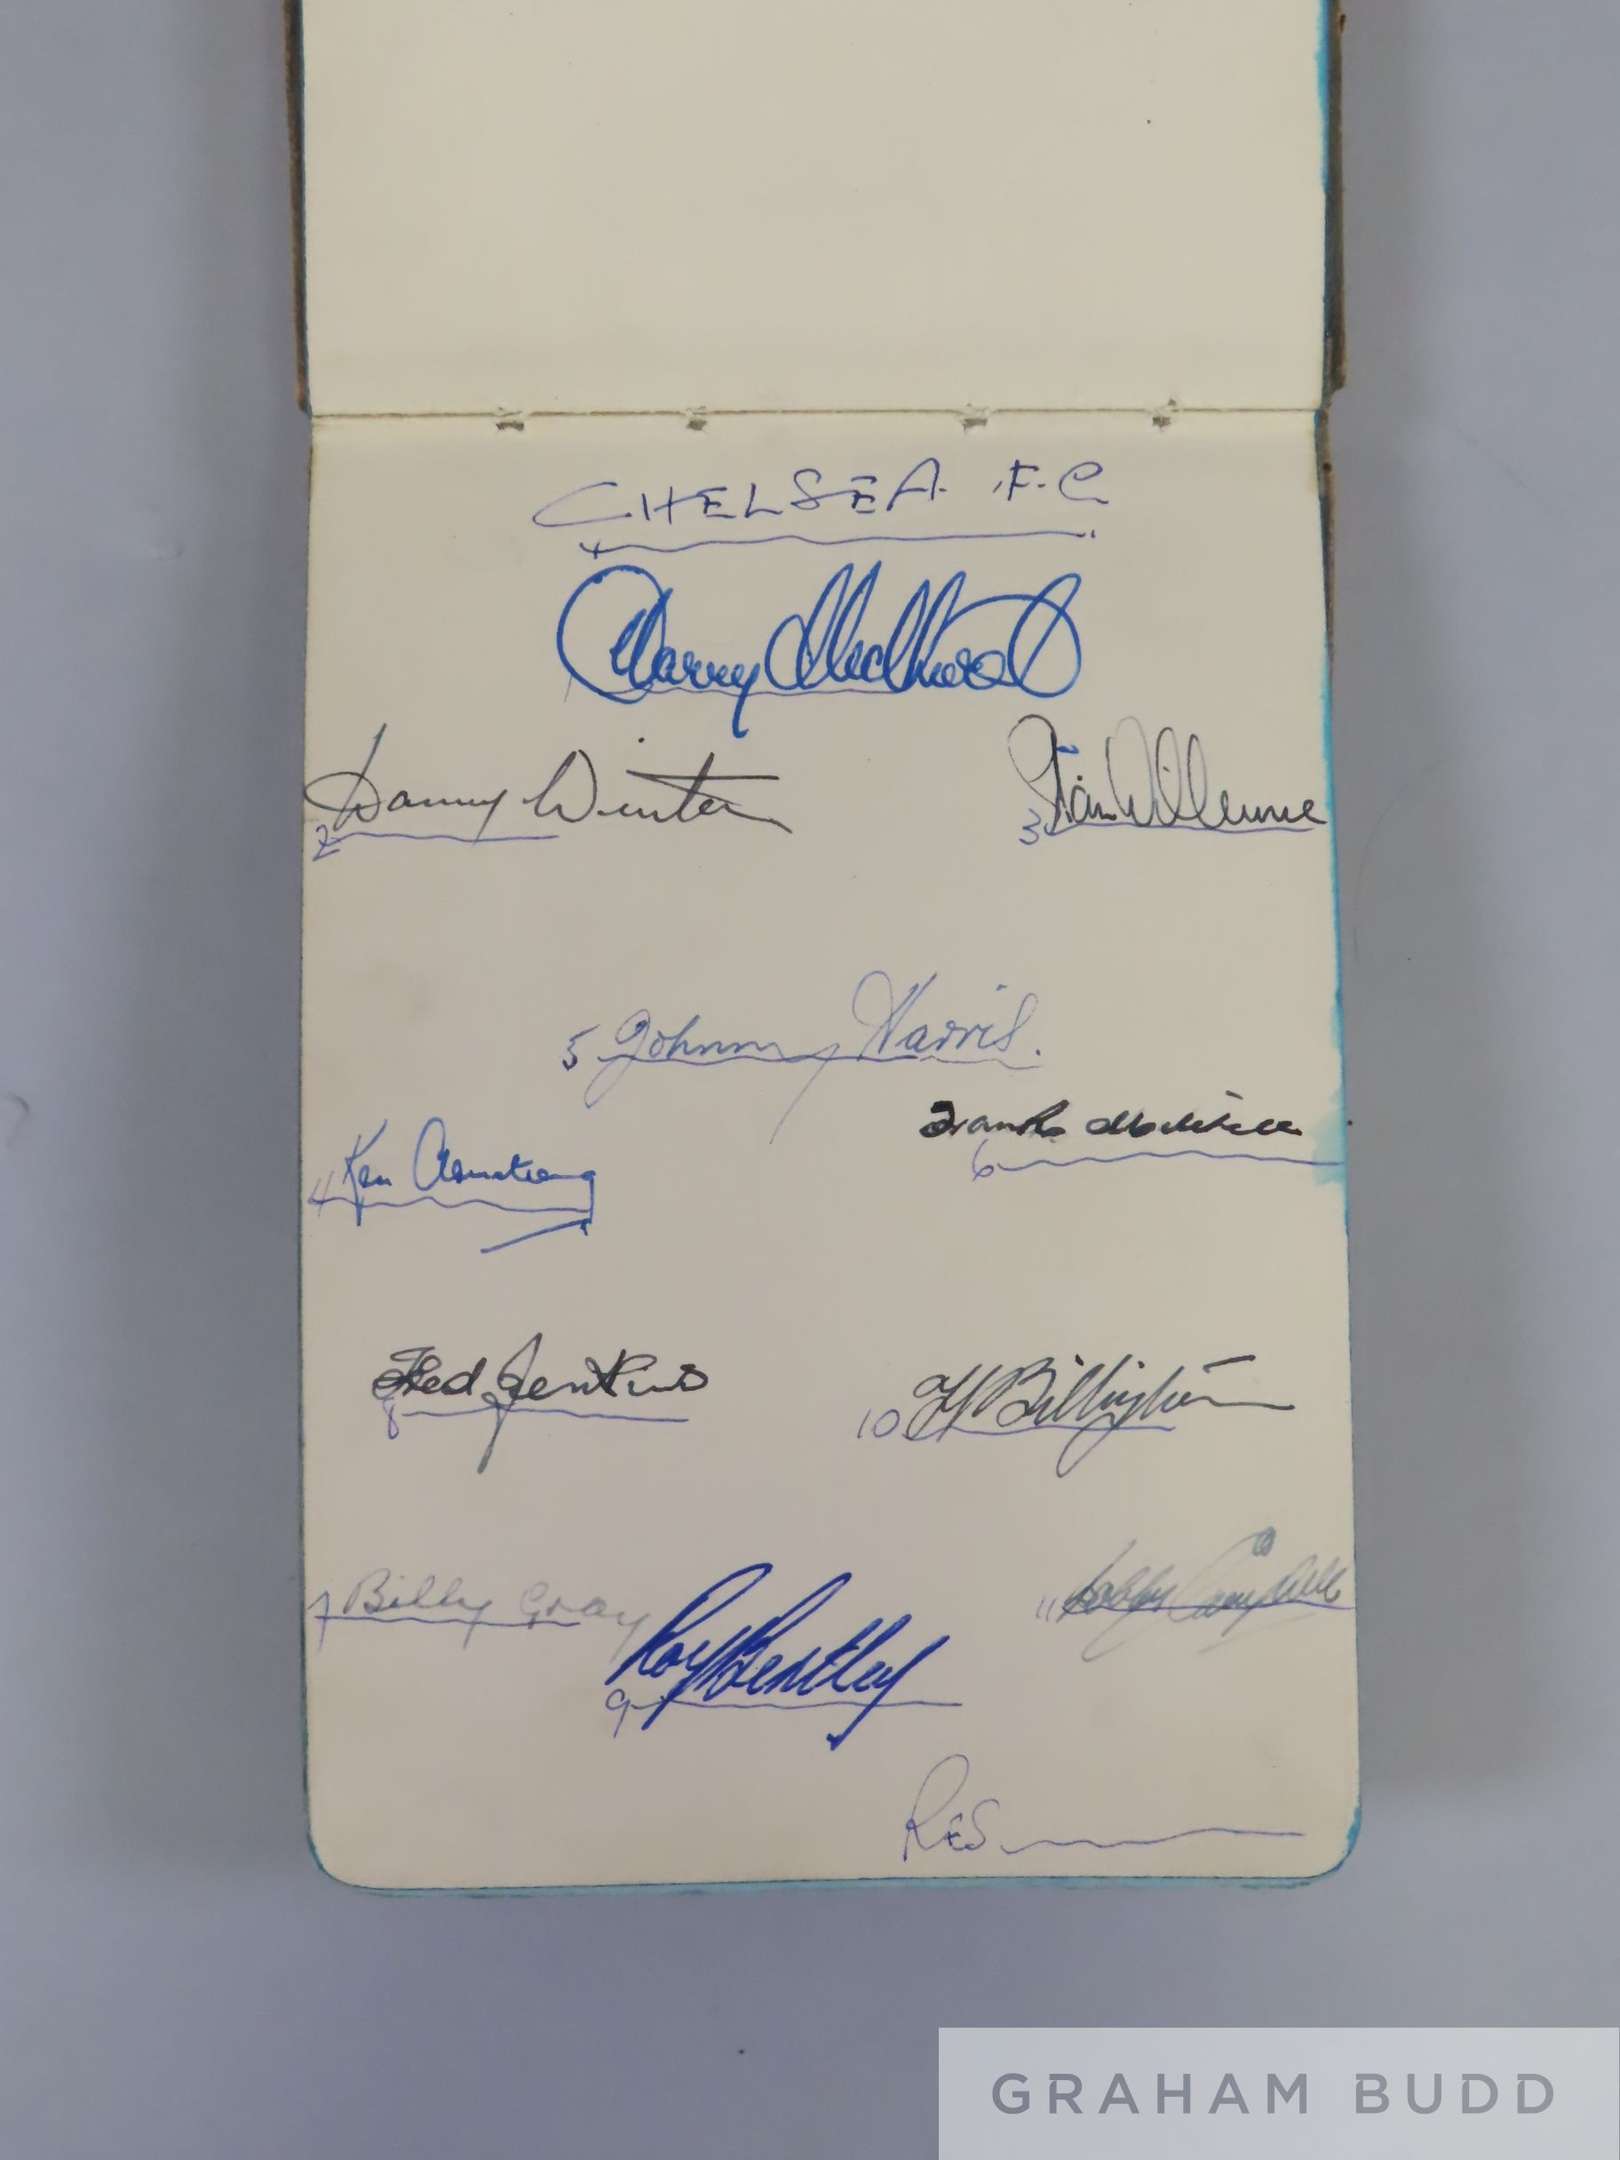 CHELSEA. F.C
1 Harry Medhurst
2 Danny Winter
3 Stan Willemse
5 Johnny Harris.
Frank Mitchell
6
4 Ken Armstrong
Fred Jenkins
8
10 H Billington
7 Billy Gray
11 Bobby Campbell
9 Roy Bentley
RES
GRAHAM BUDD